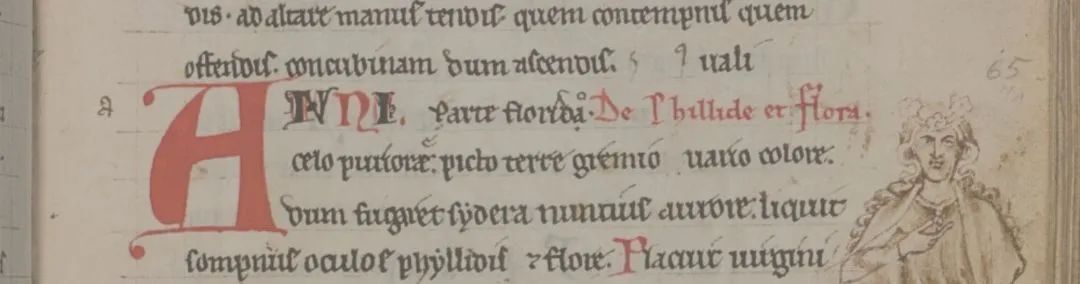 dis· ad altare manus tendis· quem contempnis quem
offendis. concubinam dum ascendis. ꝯ uali
a ANNI. Parte florida· De Phillide et flora.
celo puriore. picto terre gremio uario colore.
dum fugaret sydera nuncius aurore. liquit
sompnus oculos phyllidis ⁊ flore. Placuit uirgini
65